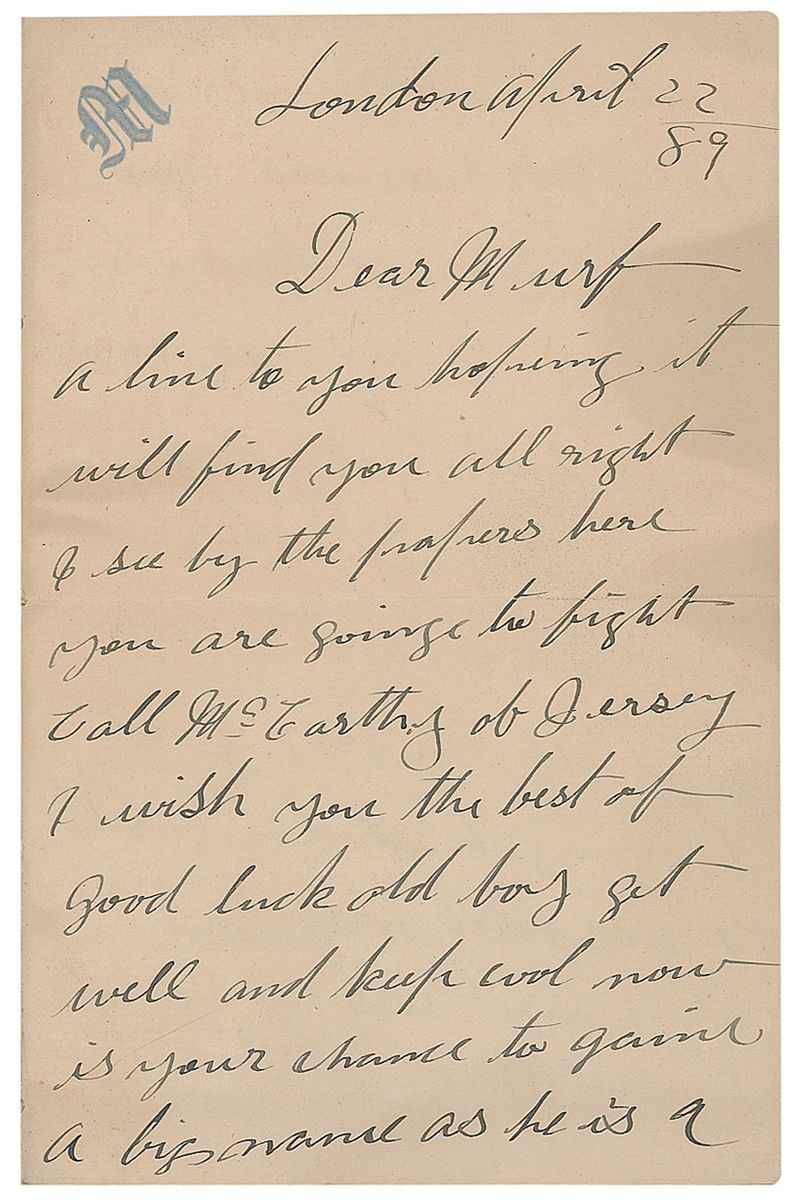 M
London April 22
89
Dear Murf
a line to you hopeing it
will find you all right
I see by the papers here
you are goinge to fight
Call McCarthy of Jersey
I wish you the best of
good luck old boy get
well and keep cool now
is your chance to gaine
a big name as he is a